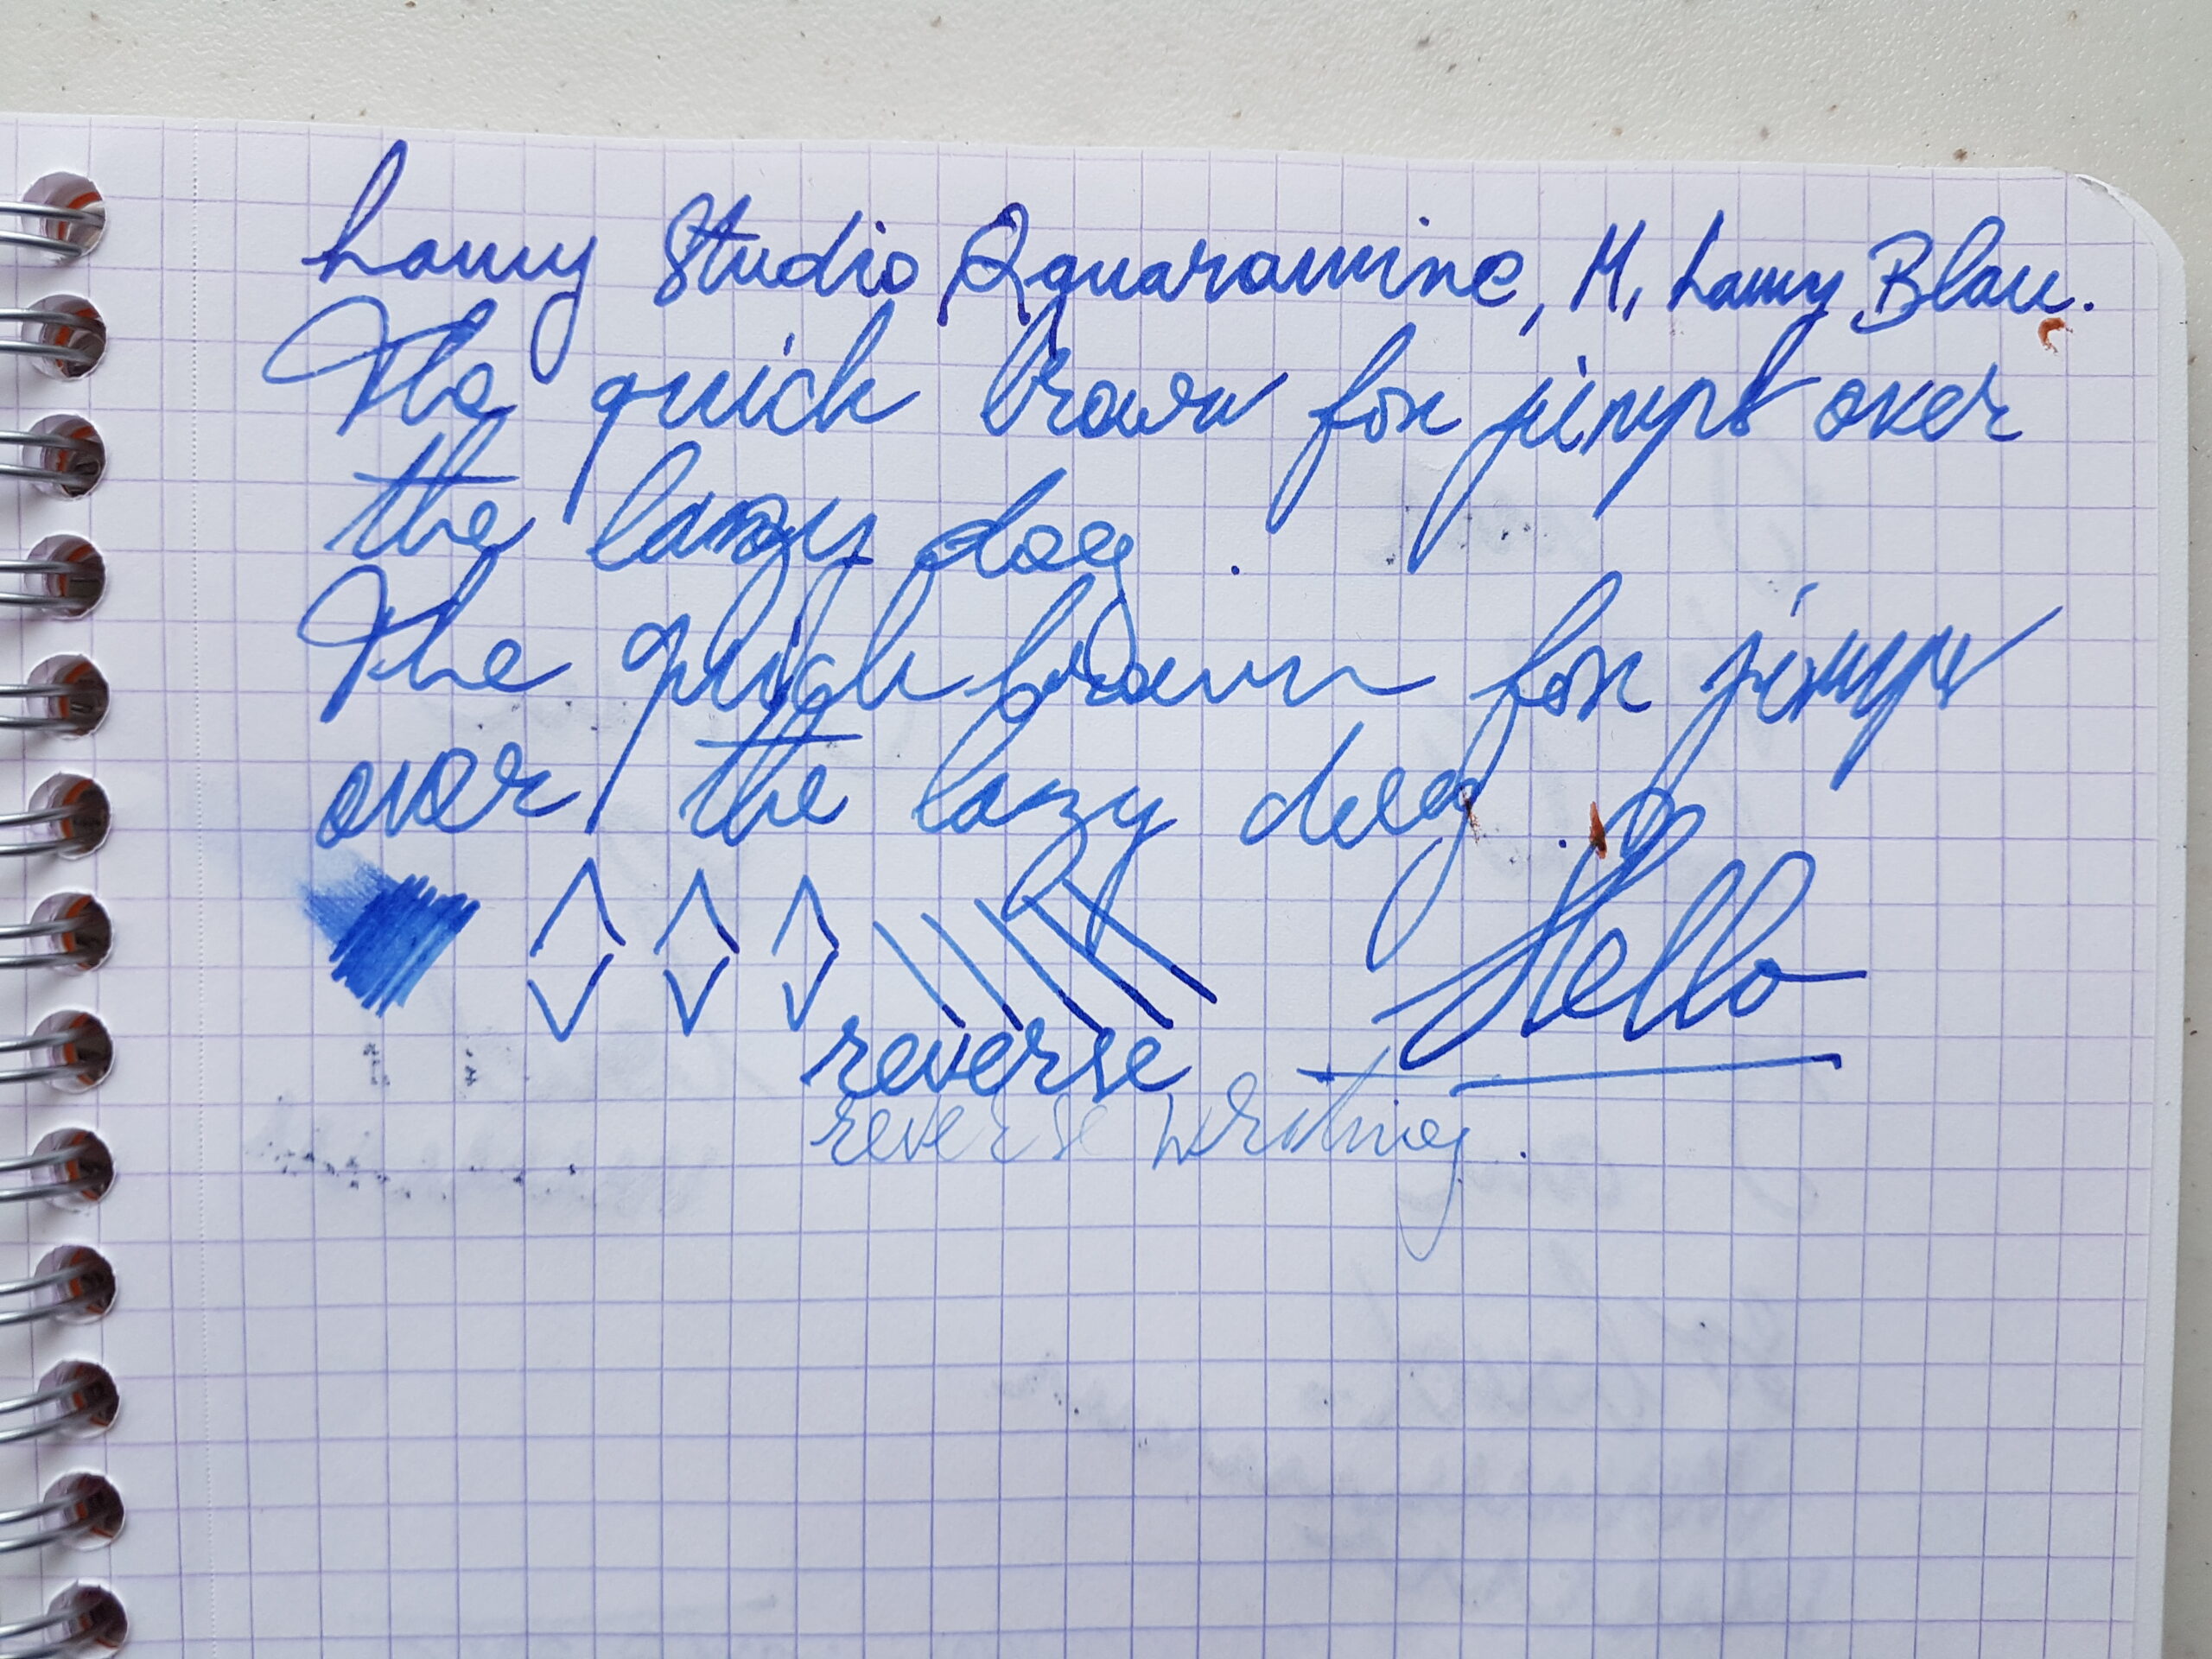 Lamy Studio Aquaramine, M, Lamy Blau.
The quick brown fox jimps over
the lazy dog.
The quick brown fox jimps
over the lazy dog.
Hello
reverse
reverse writing.